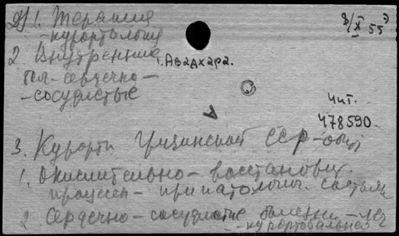 1. Терапия
- курортология
8/X 55
2 Внутренние
1. Авадхара.
бол - сердечно -
- сосудистые
Чит.
478590
3. Курорты Грузинской ССР -
1. Окислительно - восстанов.
процессы - при патологич. состоян
2 Сердечно - сосудистые болезни -
- курортолог